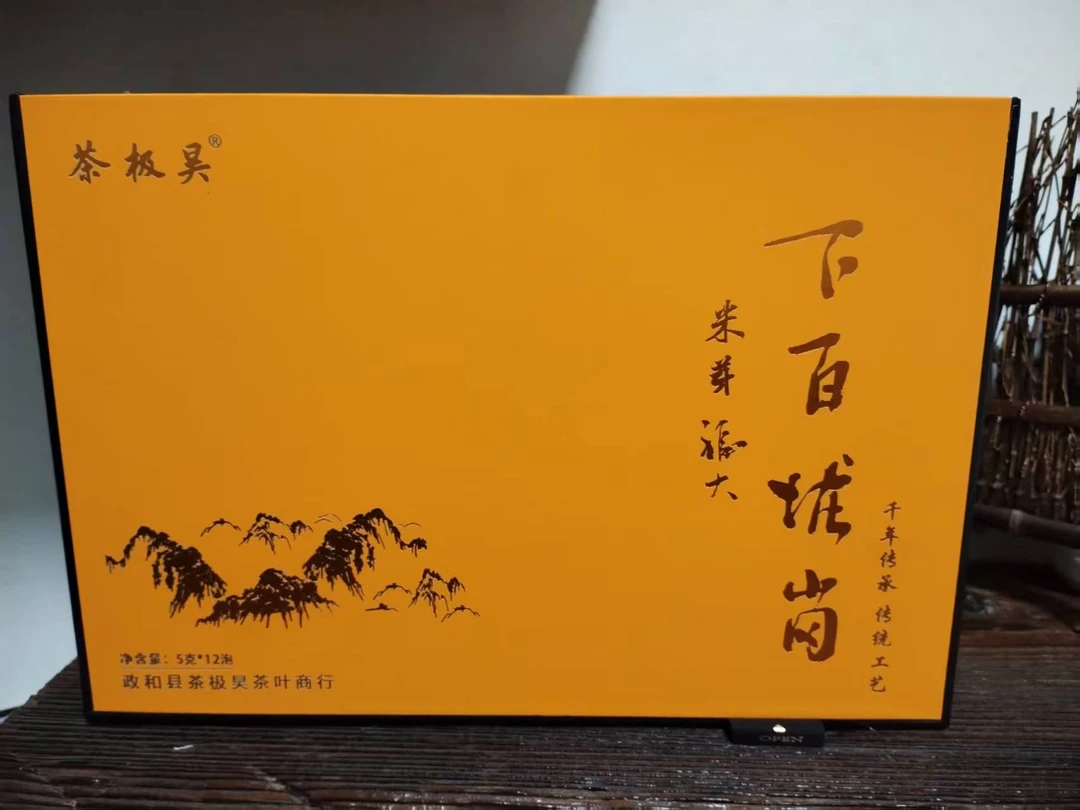 茶极昊®
下百垅岗
米芽福大
千年传承 传统工艺
净含量：5克*12泡
政和县茶极昊茶叶商行
OPEN